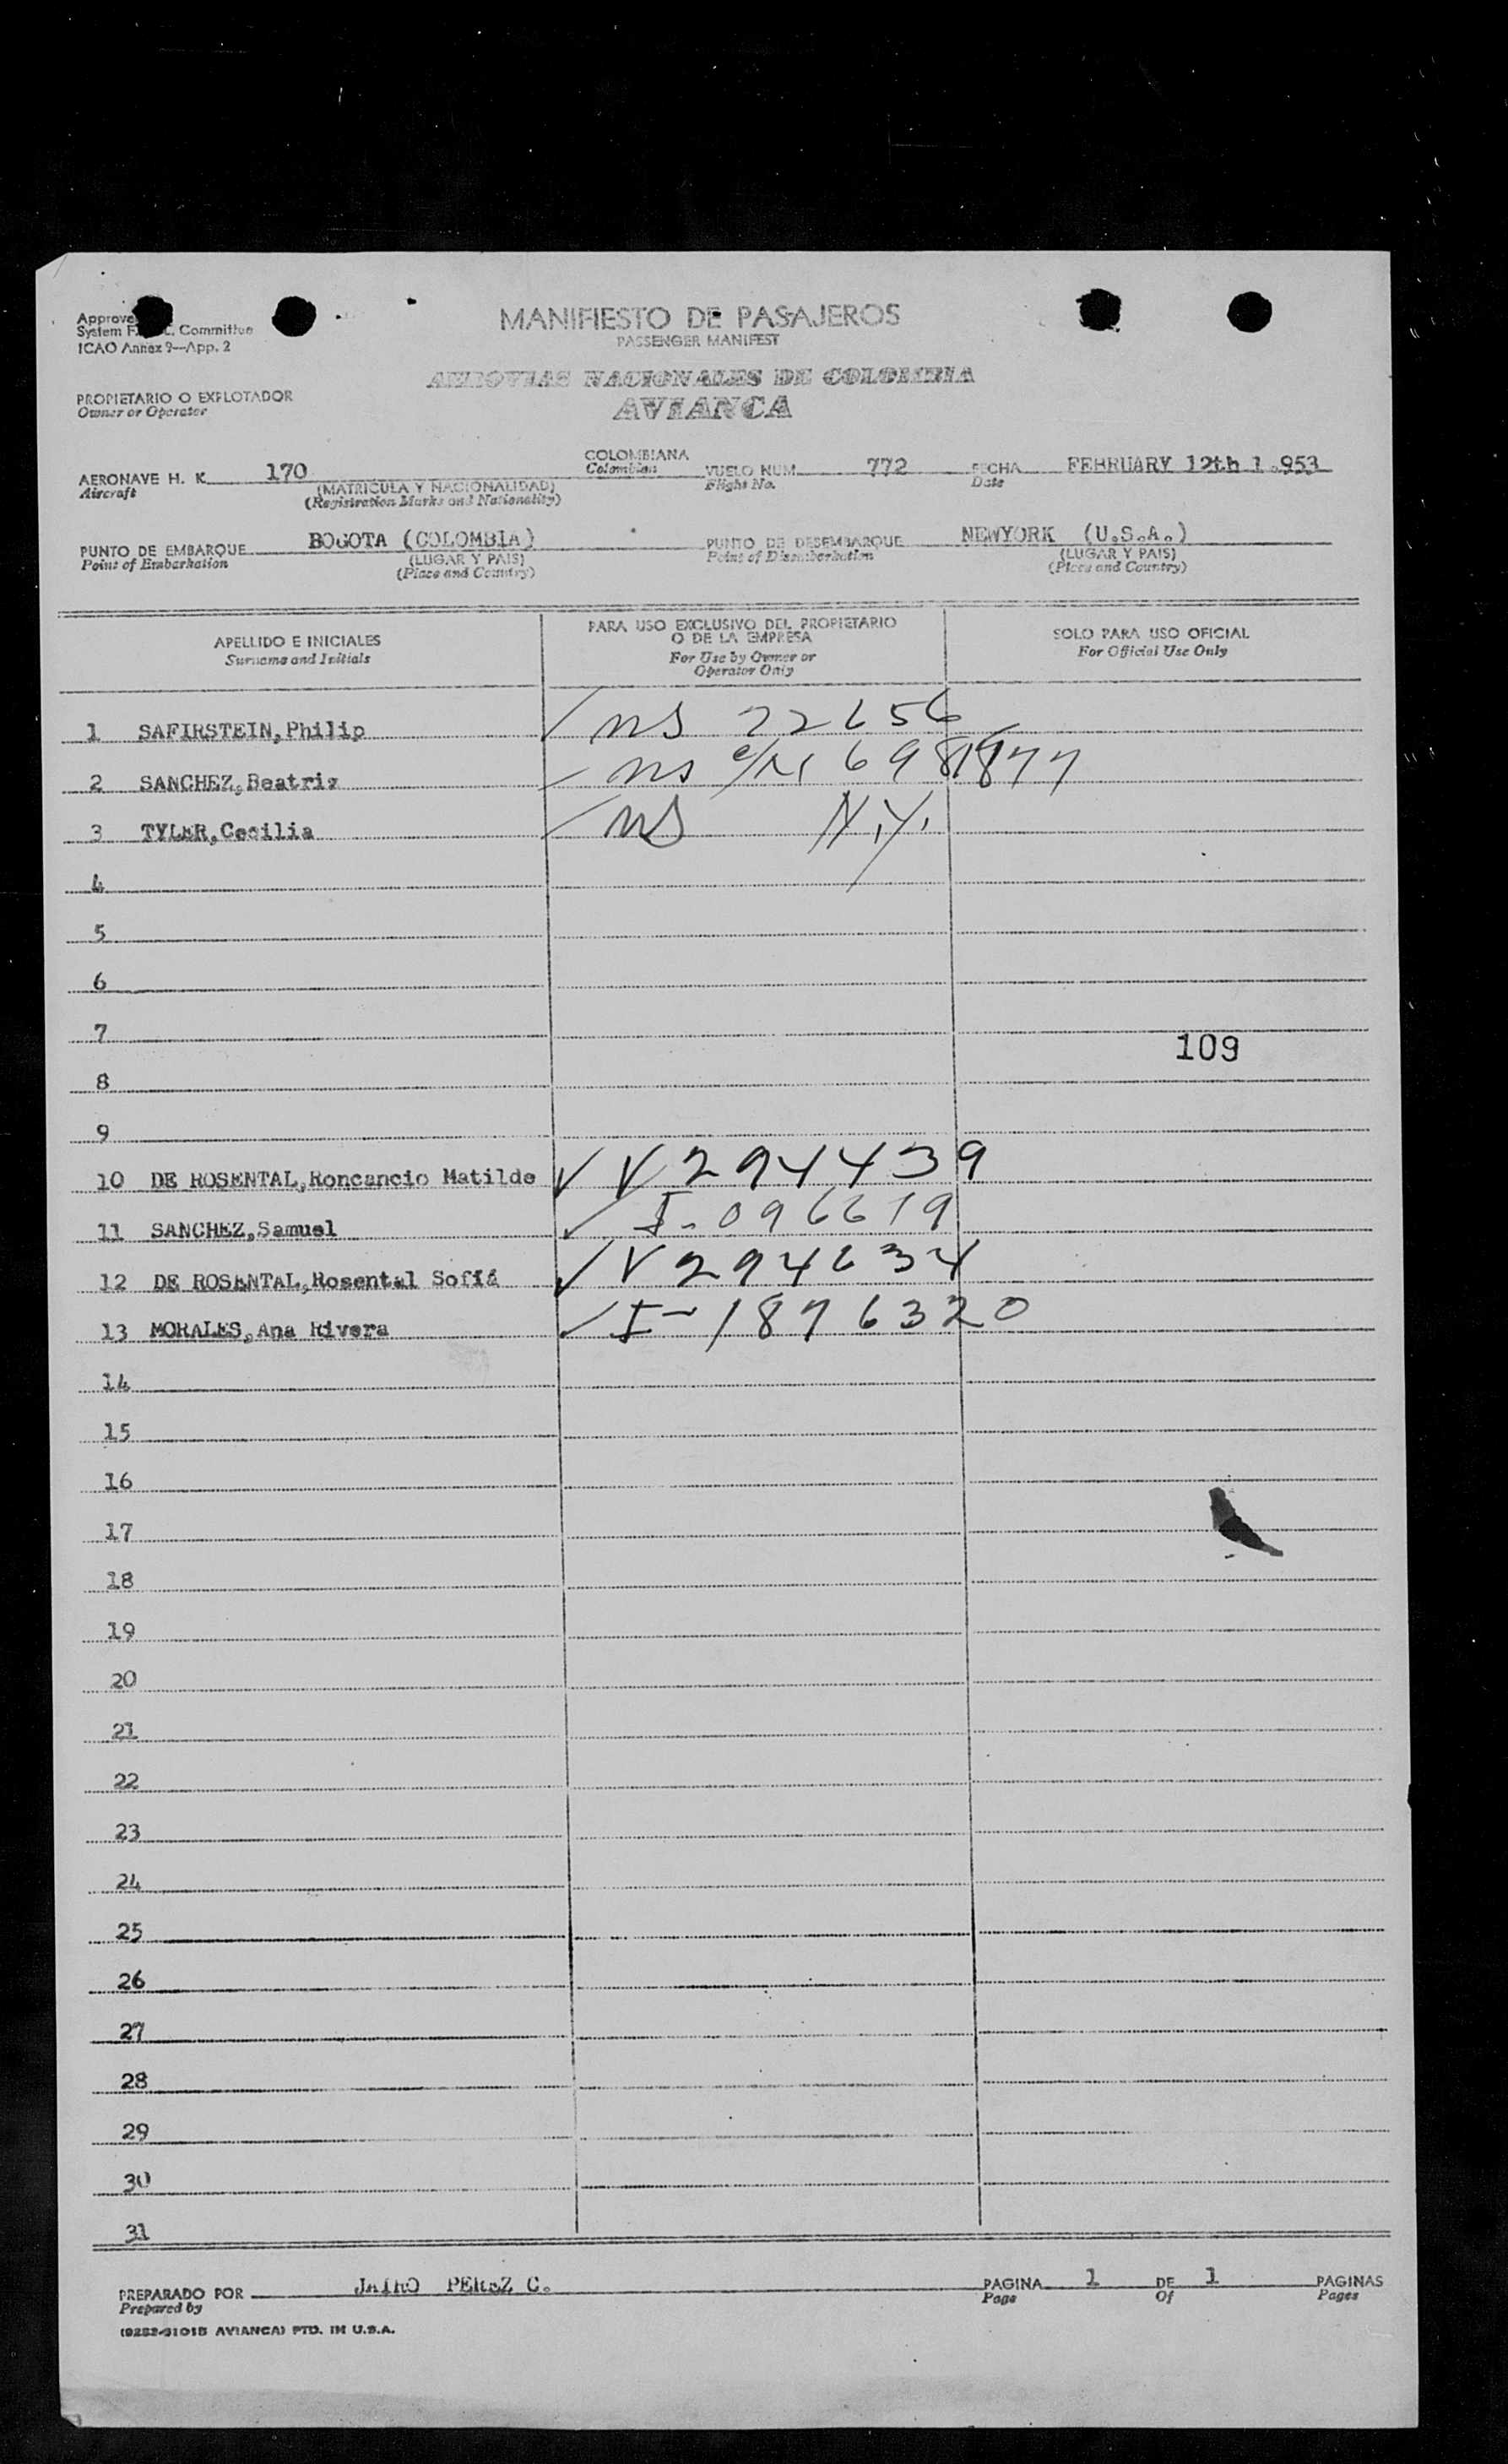 MANIFIESTO DE PASAJEROS
PASSENGER MANIFEST
Approve
System F. Committee
ICAO Annex 9—App. 2
AEROVIAS NACIONALES DE COLOMBIA
AVIANCA
PROPIETARIO O EXPLOTADOR
Owner or Operator
AERONAVE H. K. 170 COLOMBIANA VUELO NUM. 772 FECHA FEBRUARY 12th 1.953
Aircraft (MATRICULA Y NACIONALIDAD) Colombian Flight No. Date
(Registration Marks and Nationality)
PUNTO DE EMBARQUE BOGOTA (COLOMBIA) PUNTO DE DESEMBARQUE NEWYORK (U.S.A.)
Point of Embarkation (LUGAR Y PAIS) Point of Disembarkation (LUGAR Y PAIS)
(Place and Country) (Place and Country)
APELLIDO E INICIALES
Surname and Initials
PARA USO EXCLUSIVO DEL PROPIETARIO
O DE LA EMPRESA
For Use by Owner or
Operator Only
SOLO PARA USO OFICIAL
For Official Use Only
1 SAFIRSTEIN,Philip ns 22656
2 SANCHEZ,Beatriz ns
3 TYLER,Cecilia ns N.Y.
4
5
6
7
109
8
9
10 DE ROSENTAL,Roncancio Matilde V 294439
11 SANCHEZ,Samuel I-096619
12 DE ROSENTAL,Rosental Sofiá V 294634
13 MORALES,Ana Rivera I-1876320
14
15
16
17
18
19
20
21
22
23
24
25
26
27
28
29
30
31
PREPARADO POR JAIRO PEREZ C. PAGINA 1 DE 1 PAGINAS
Prepared by Page Of Pages
(9282-3101B AVIANCA) PTD. IN U.S.A.